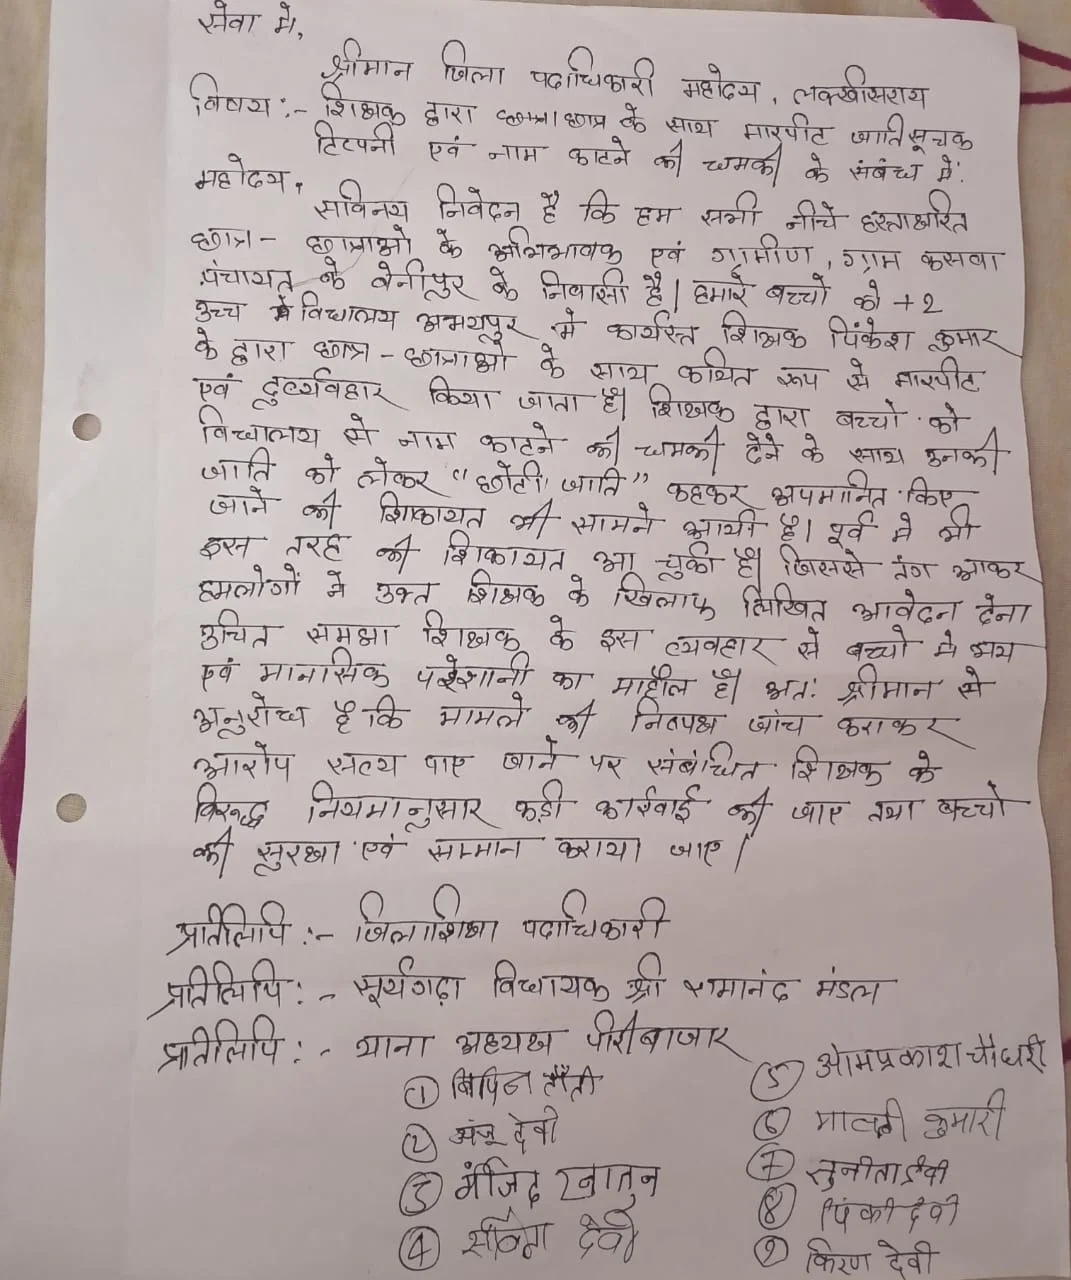 सेवा मे,
श्रीमान जिला पदाधिकारी महोदय, लक्खीसराय
विषय :- शिक्षक द्वारा छात्रा छात्र के साथ मारपीट जातिसूचक
टिटपनी एवं नाम काटने की धमकी के संबंध मे:
महोदय,
सविनय निवेदन है कि हम सभी नीचे हस्ताक्षरित
छात्र - छात्राओ के अभिभावक एवं ग्रामीण, ग्राम कसवा
पंचायत के बेनीपुर के निवासी है। हमारे बच्चो को +2
उच्च विधालय अभयपुर मे कार्यरत शिक्षक पिंकेश कुमार
के द्वारा छात्र - छात्राओ के साथ कथित रूप से मारपीट
एवं दुर्व्यवहार किया जाता है। शिक्षक द्वारा बच्चो को
विधालय से नाम काटने की धमकी देने के साथ उनकी
जाति को लेकर "छोटी जाति" कहकर अपमानित किए
जाने की शिकायत भी सामने आयी है। पूर्व मे भी
इस तरह की शिकायत आ चुकी है। जिससे तंग आकर
हमलोगों ने उक्त शिक्षक के खिलाफ लिखित आवेदन देना
उचित समझा शिक्षक के इस व्यवहार से बच्चो मे भय
एवं मानसिक परेशानी का माहौल है। अत: श्रीमान से
अनुरोध है कि मामले की निष्पक्ष जांच कराकर
आरोप सत्य पाए जाने पर संबंधित शिक्षक के
विरूद्ध नियमानुसार कड़ी कार्रवाई की जाए तथा बच्चो
की सुरक्षा एवं सम्मान कराया जाए।
प्रतिलिपि :- जिलाशिक्षा पदाधिकारी
प्रतिलिपि :- सूर्यगढ़ा विधायक श्री रामानंद मंडल
प्रतिलिपि :- थाना अध्यक्ष पीरीबाजार
① बिपिन ताँती
② अंजू देवी
③ मंजिद खातुन
④ सविता देवी
⑤ ओमप्रकाश चौधरी
⑥ मालती कुमारी
⑦ सुनीता देवी
⑧ पिंकी देवी
⑨ किरण देवी